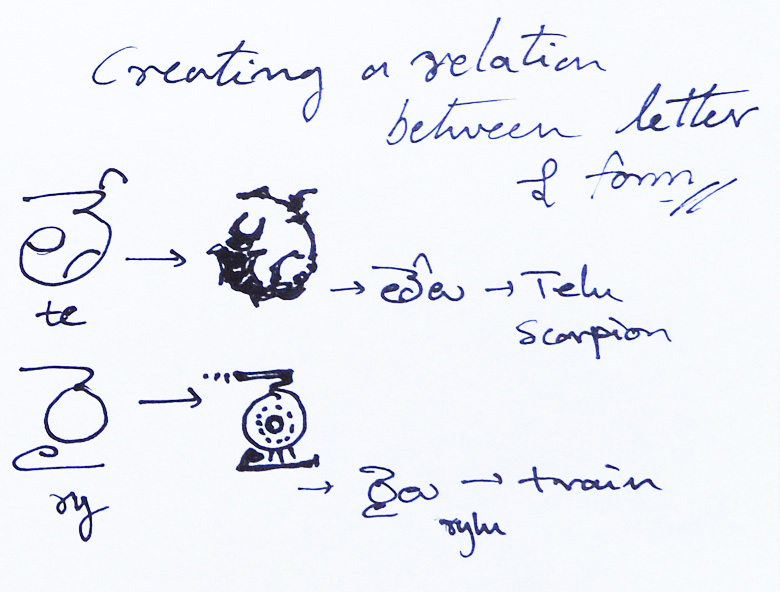 Creating a relation
between letter
& form
తే → → తేలు → Telu
te
Scorpion
రై → → రైలు → train
ry
rylu